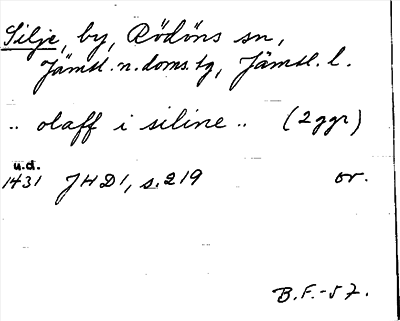 Silje, by, Rödöns sn,
Jämtl. n. doms. tg, Jämtl. l.
.. olaff i siline .. (2 ggr)
u.d.
1431 JHD 1, s. 219 or.
B.F.-57.